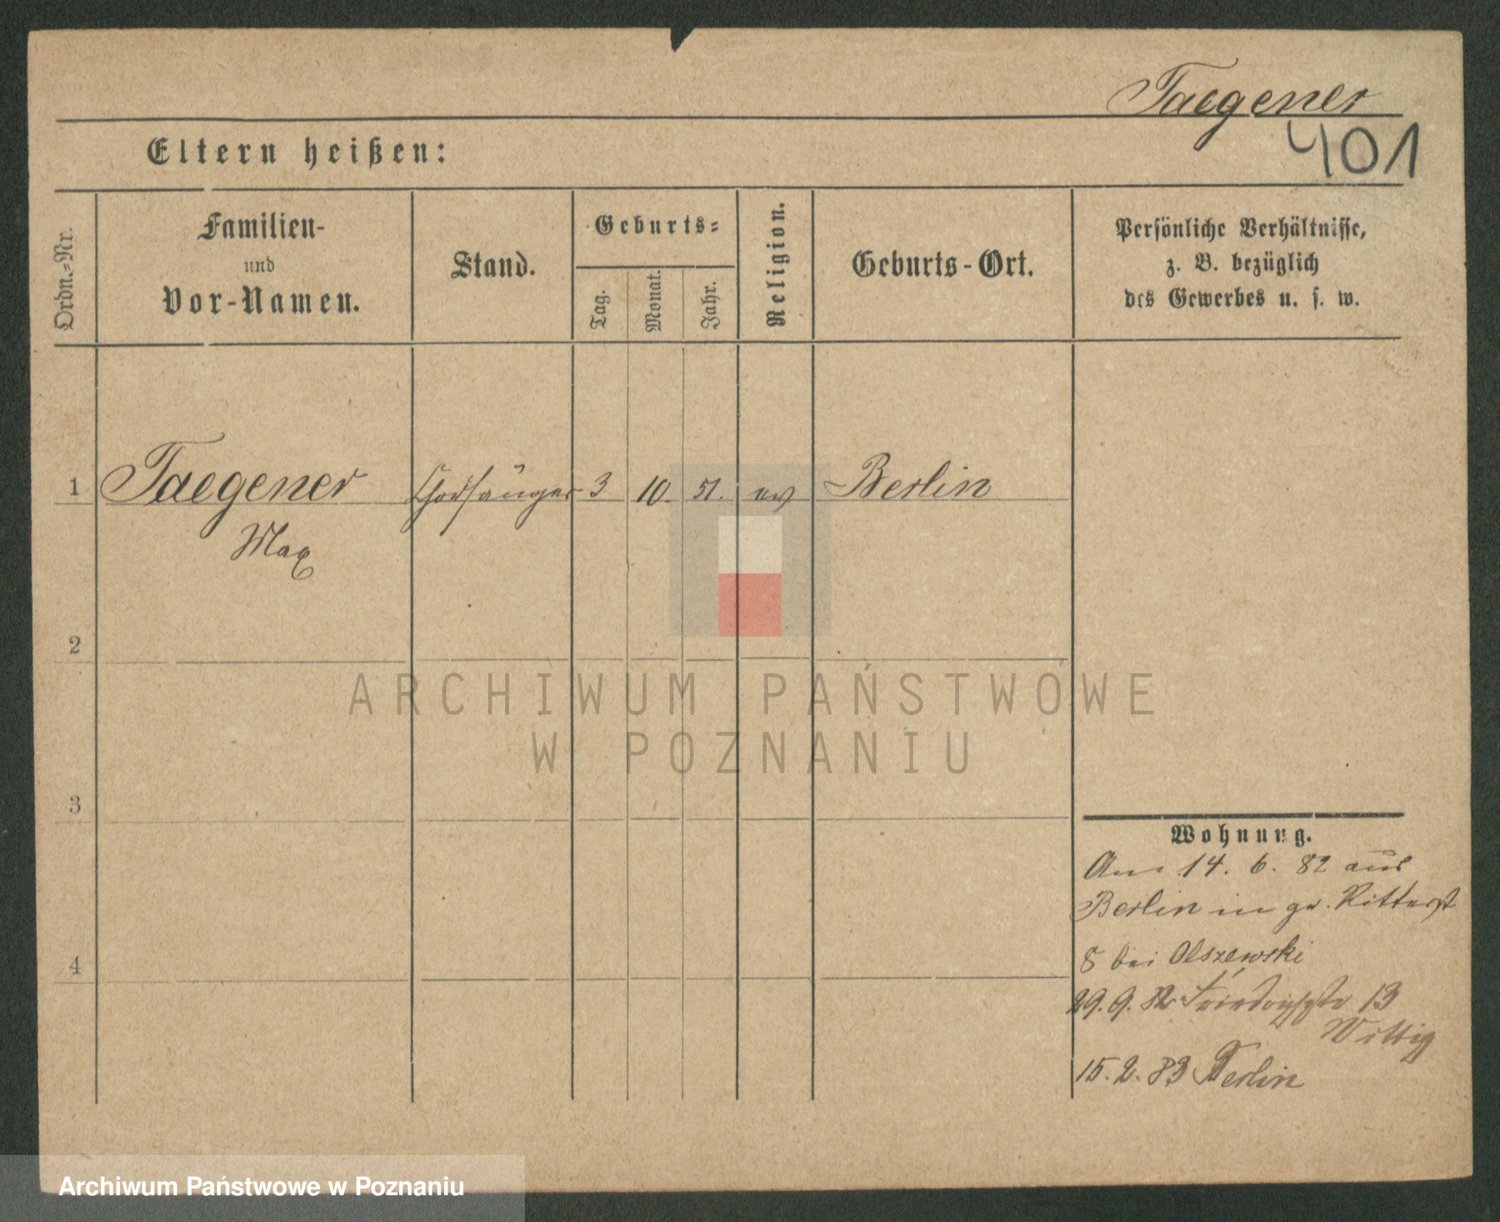 Taegener
401
Eltern heißen:
Ordn.=Nr.
Familien-
und
Vor-Namen.
Stand.
Geburts=
Tag.
Monat.
Jahr.
Religion.
Geburts-Ort.
Persönliche Verhältnisse,
z. B. bezüglich
des Gewerbes u. s. w.
1 Taegener Chorsänger 3 10. 51. ev Berlin
Max
2
3
4
ARCHIWUM PAŃSTWOWE
W POZNANIU
Wohnung.
Am 14. 6. 82 aus
Berlin in gr. Ritterst
8 bei Olszewski
29. 9. 82 Friedrichstr 13
Wittig
15. 2. 83 Berlin
Archiwum Państwowe w Poznaniu